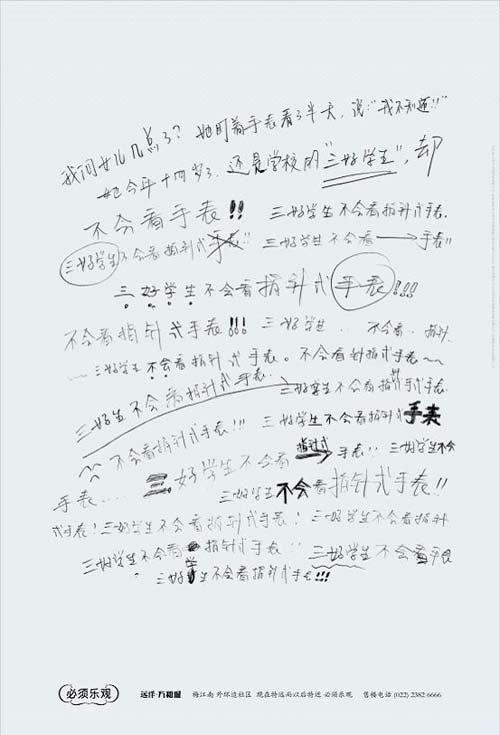 我问女儿几点了？她盯着手表看了半天，说：“我不知道！！”
她今年十四岁了，还是学校的“三好学生”，却
不会看手表！！ 三好学生不会看指针式手表.
三好学生不会看指针式手表!! 三好学生不会看——→手表!!
三好学生不会看指针式手表!!!
不会看指针式手表!!! 三好学生.. 不会看.. 指针.
~三好学生不会看指针式手表。不会看针指式手表~~
三好学生不会看指针式手表. 三好学生不会看指针式手表.
三好学生不会看指针式手表
不会看指针式手表!!! 三好学生不会看指针式手表!! 三好学生不会
手表.... 三好学生不会看指针式手表!!
式手表! 三好学生不会看指针式手表! 三好学生不会看指针
三好学生不会看指针式手表!! 三好学生不会看手表
三好学生不会看指针式手表!!!
必须乐观 远洋·万和城 梅江南 外环边社区 现在特远而以后特近 必须乐观 售楼电话 (022) 2382 6666